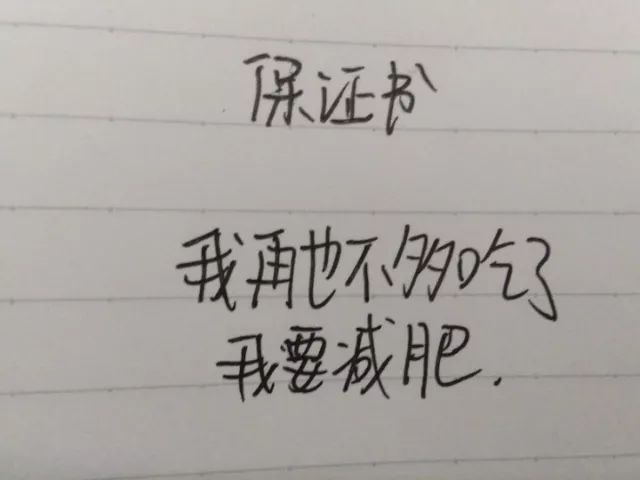 保证书
我再也不多吃了
我要减肥.